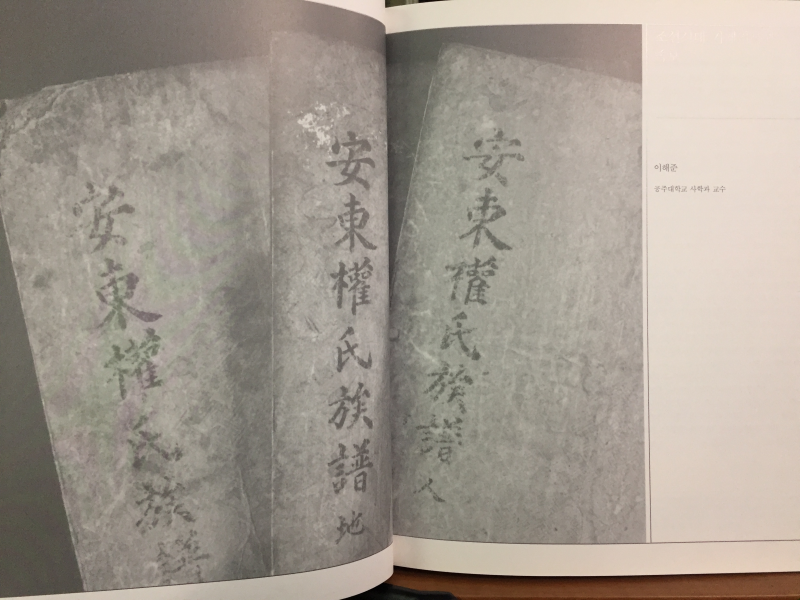 安東權氏族譜
安東權氏族譜 地
安東權氏族譜 人
이해준
공주대학교 사학과 교수